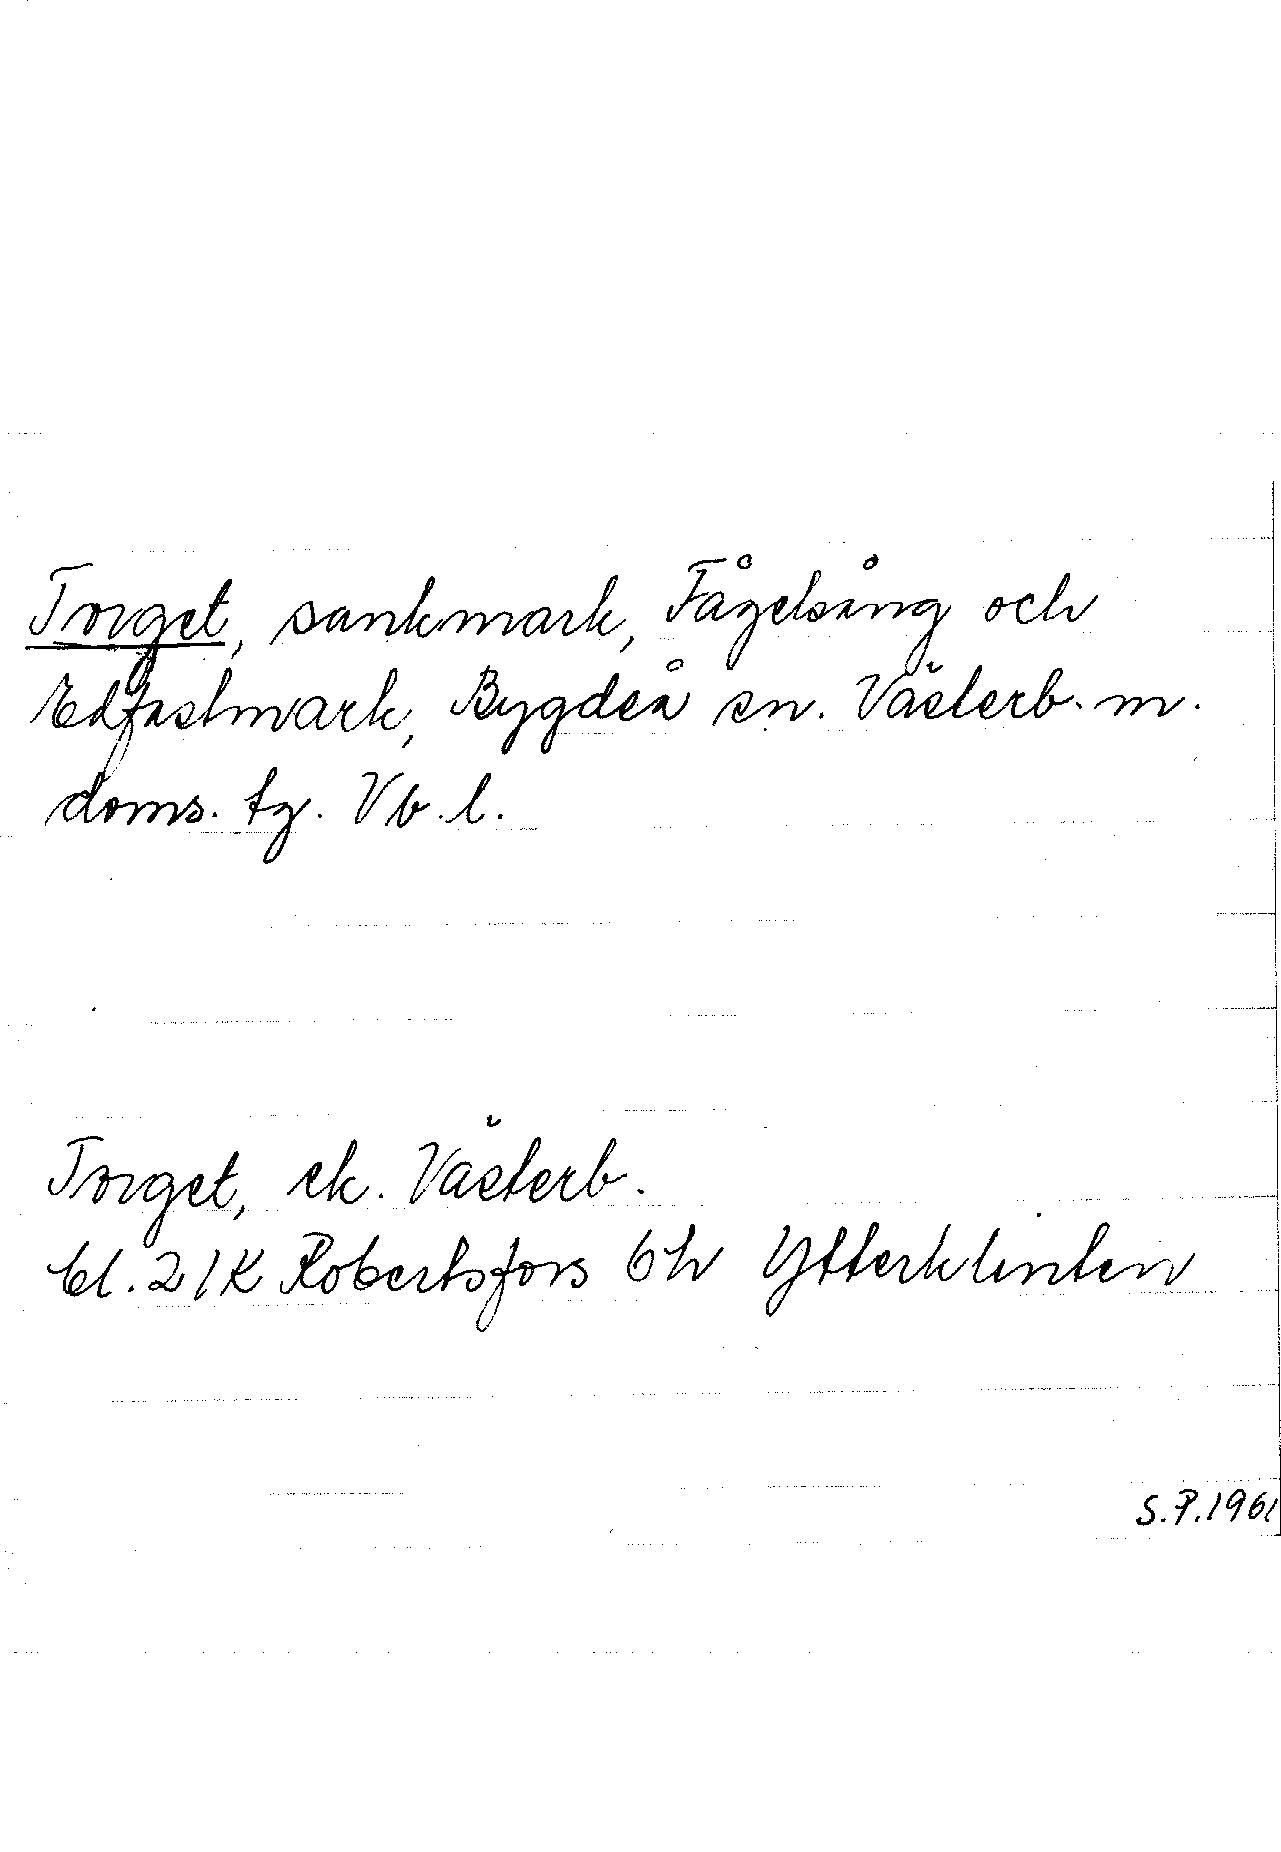 Torget, sankmark, Fågelsång och
Edfastmark, Bygdeå sn. Västerb. m.
doms. tg. Vb. l.
Torget, ek. Västerb.
bl. 21K Robertsfors 6h Ytterklinten
S.P.1961